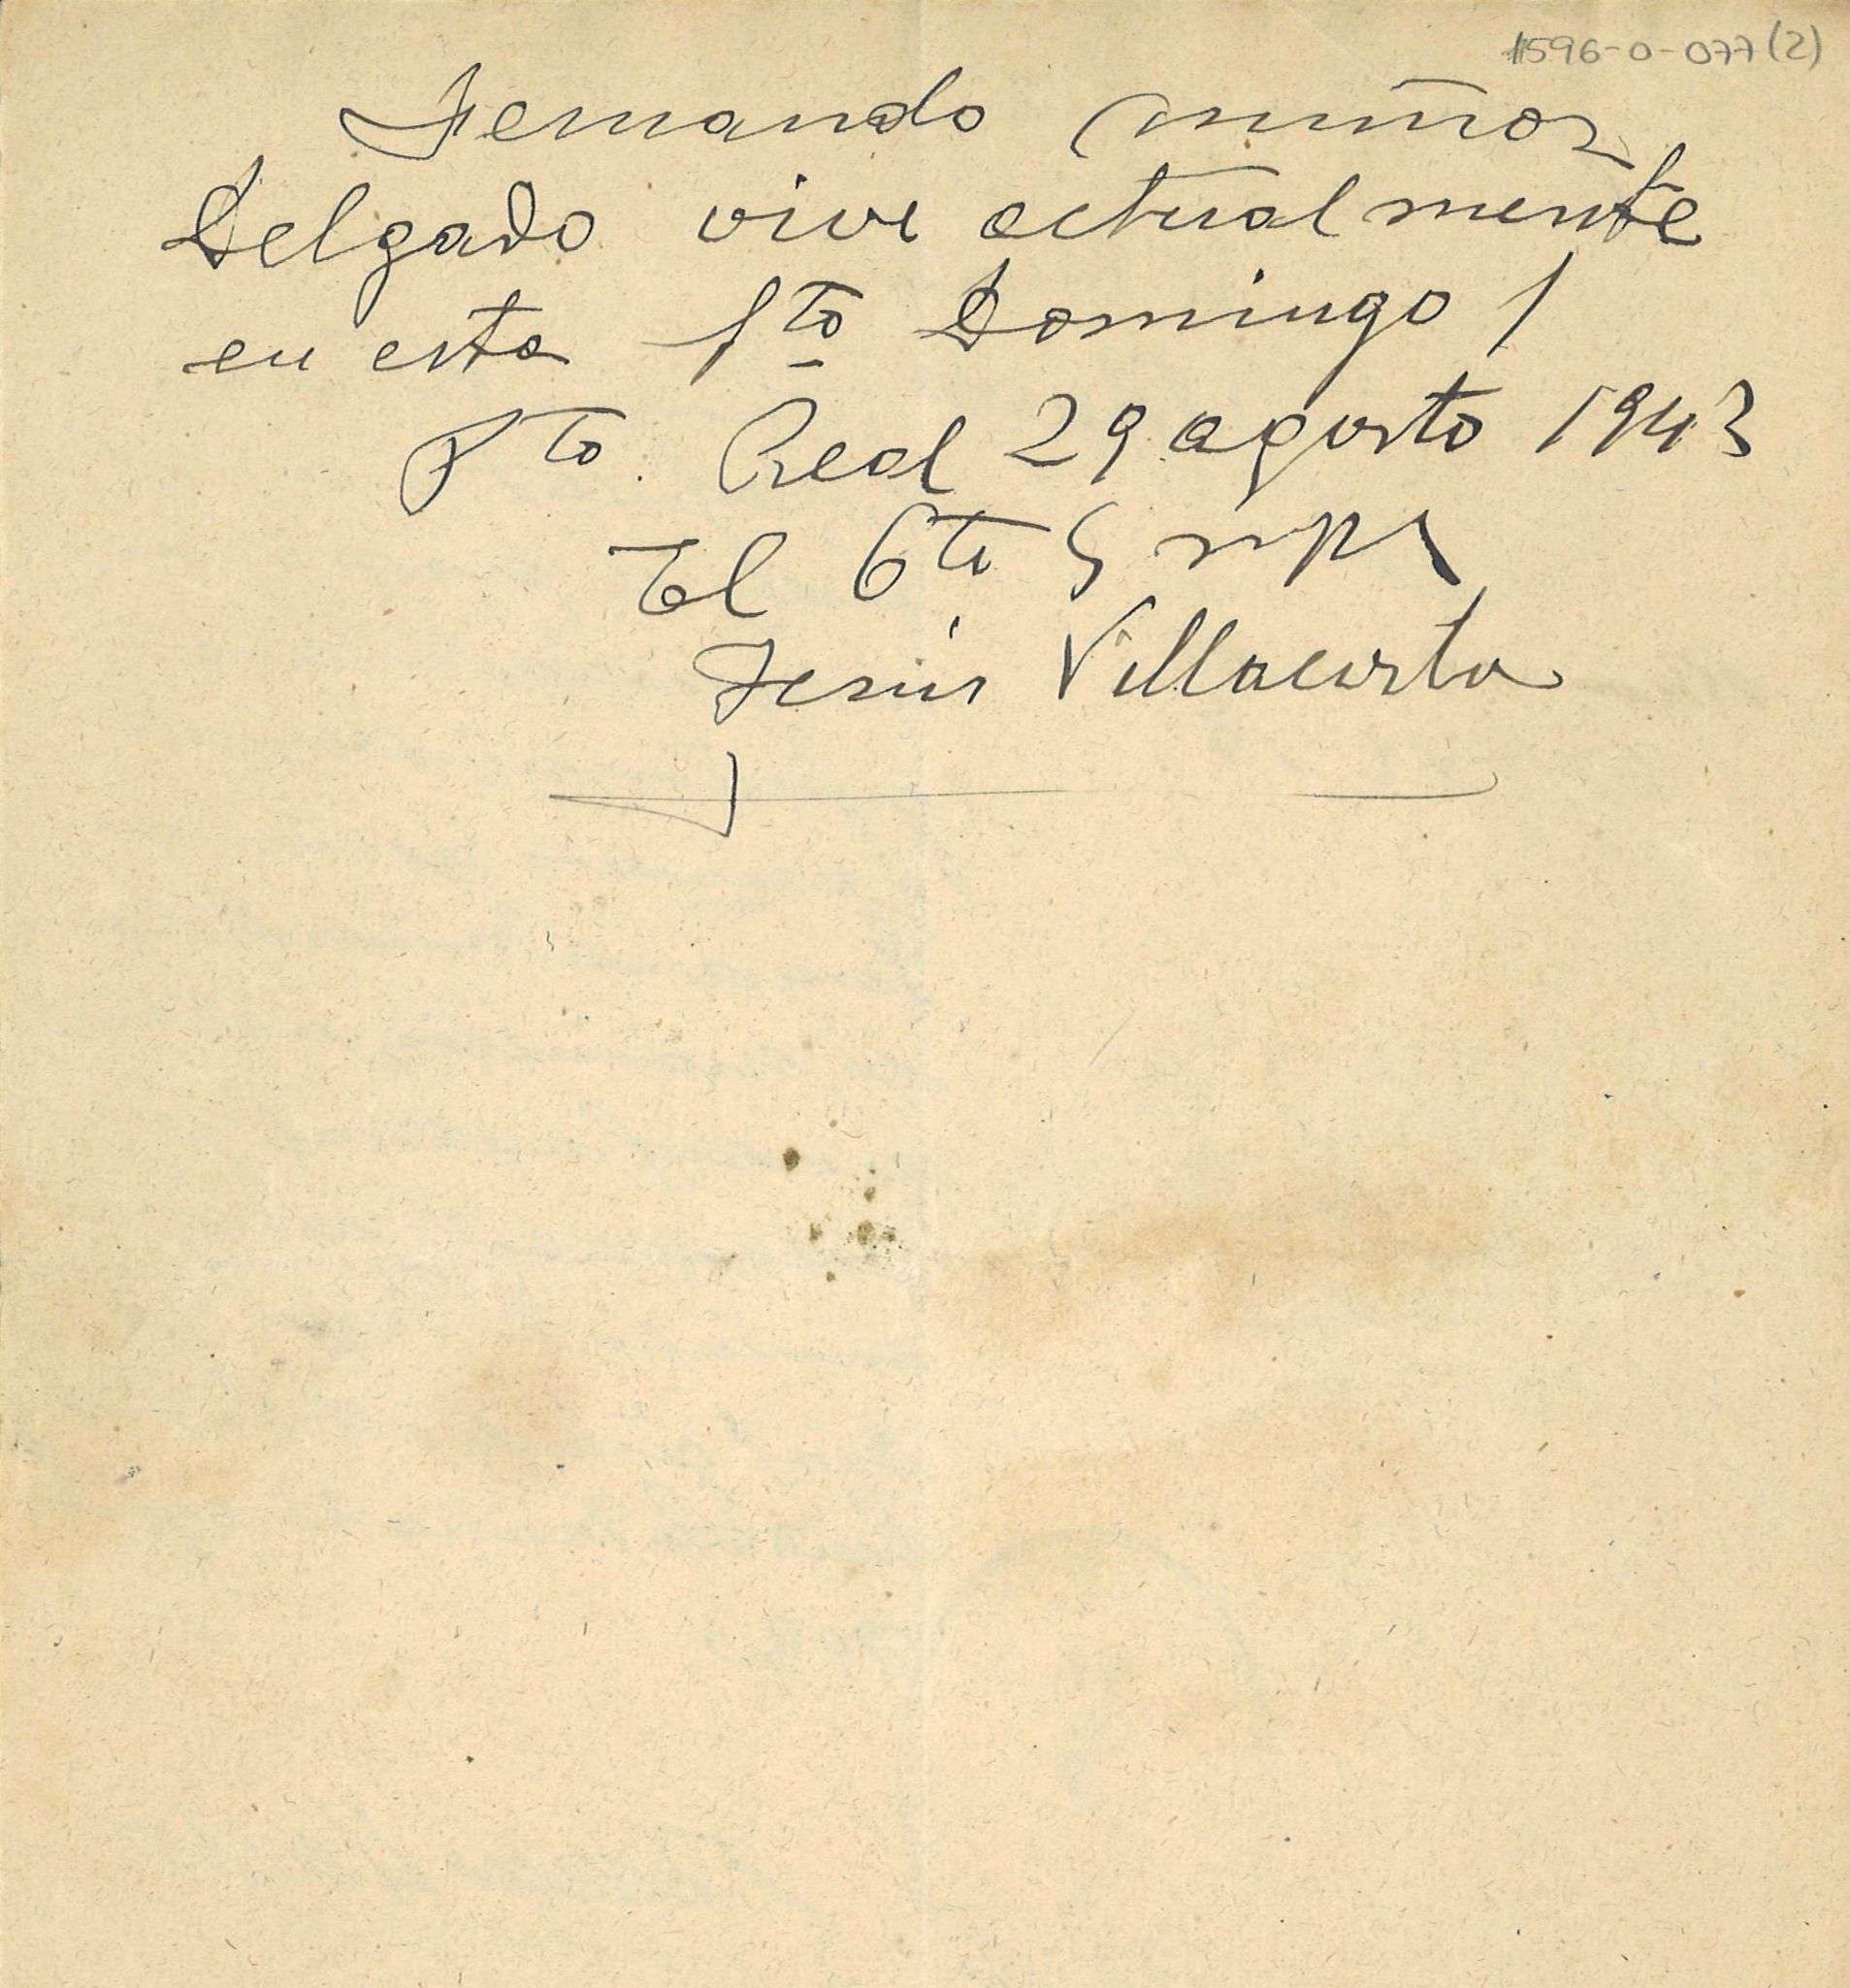 11596-0-077(2)
Fernando Muñoz
Delgado vive actualmente
en esta Sto Domingo 1
Pto. Real 29 agosto 1943
El
Jesús Villacorta